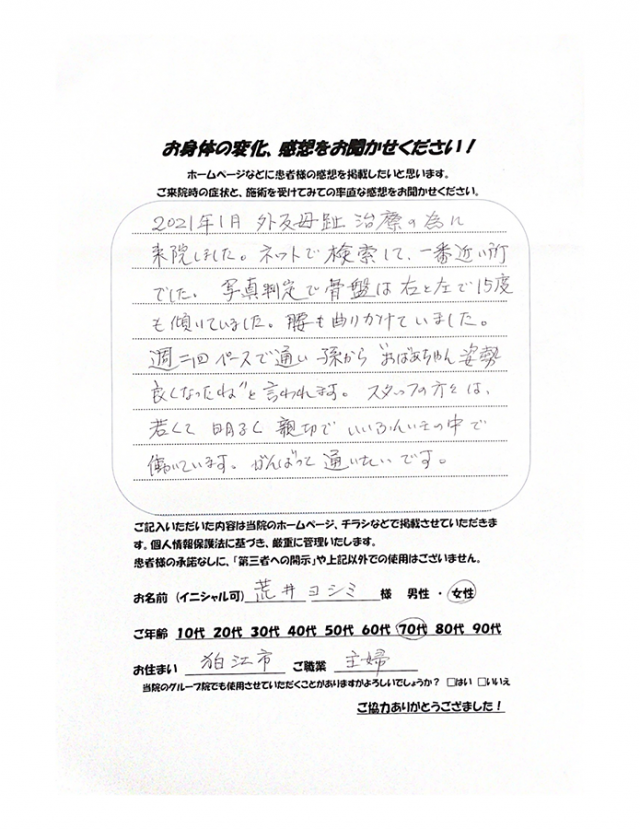 お身体の変化、感想をお聞かせください！
ホームページなどに患者様の感想を掲載したいと思います。
ご来院時の症状と、施術を受けてみての率直な感想をお聞かせください。
2021年1月 外反母趾 治療の為に
来院しました。ネットで検索して、一番近い所
でした。写真判定で骨盤は右と左で15度
も傾いていました。腰も曲りかけていました。
週二回ペースで通い孫から"おばあちゃん姿勢
良くなったね"と言われます。スタッフの方々は、
若くて 明るく 親切で いいふんいきの中で
働いています。がんばって 通いたいです。
ご記入いただいた内容は当院のホームページ、チラシなどで掲載させていただきま
す。個人情報保護法に基づき、厳重に管理いたします。
患者様の承諾なしに、「第三者への開示」や上記以外での使用はございません。
お名前（イニシャル可） 荒井ヨシミ 様 男性 ・ 女性
ご年齢 10代 20代 30代 40代 50代 60代 70代 80代 90代
お住まい 狛江市 ご職業 主婦
当院のグループ院でも使用させていただくことがありますがよろしいでしょうか？ □はい □いいえ
ご協力ありがとうござました！